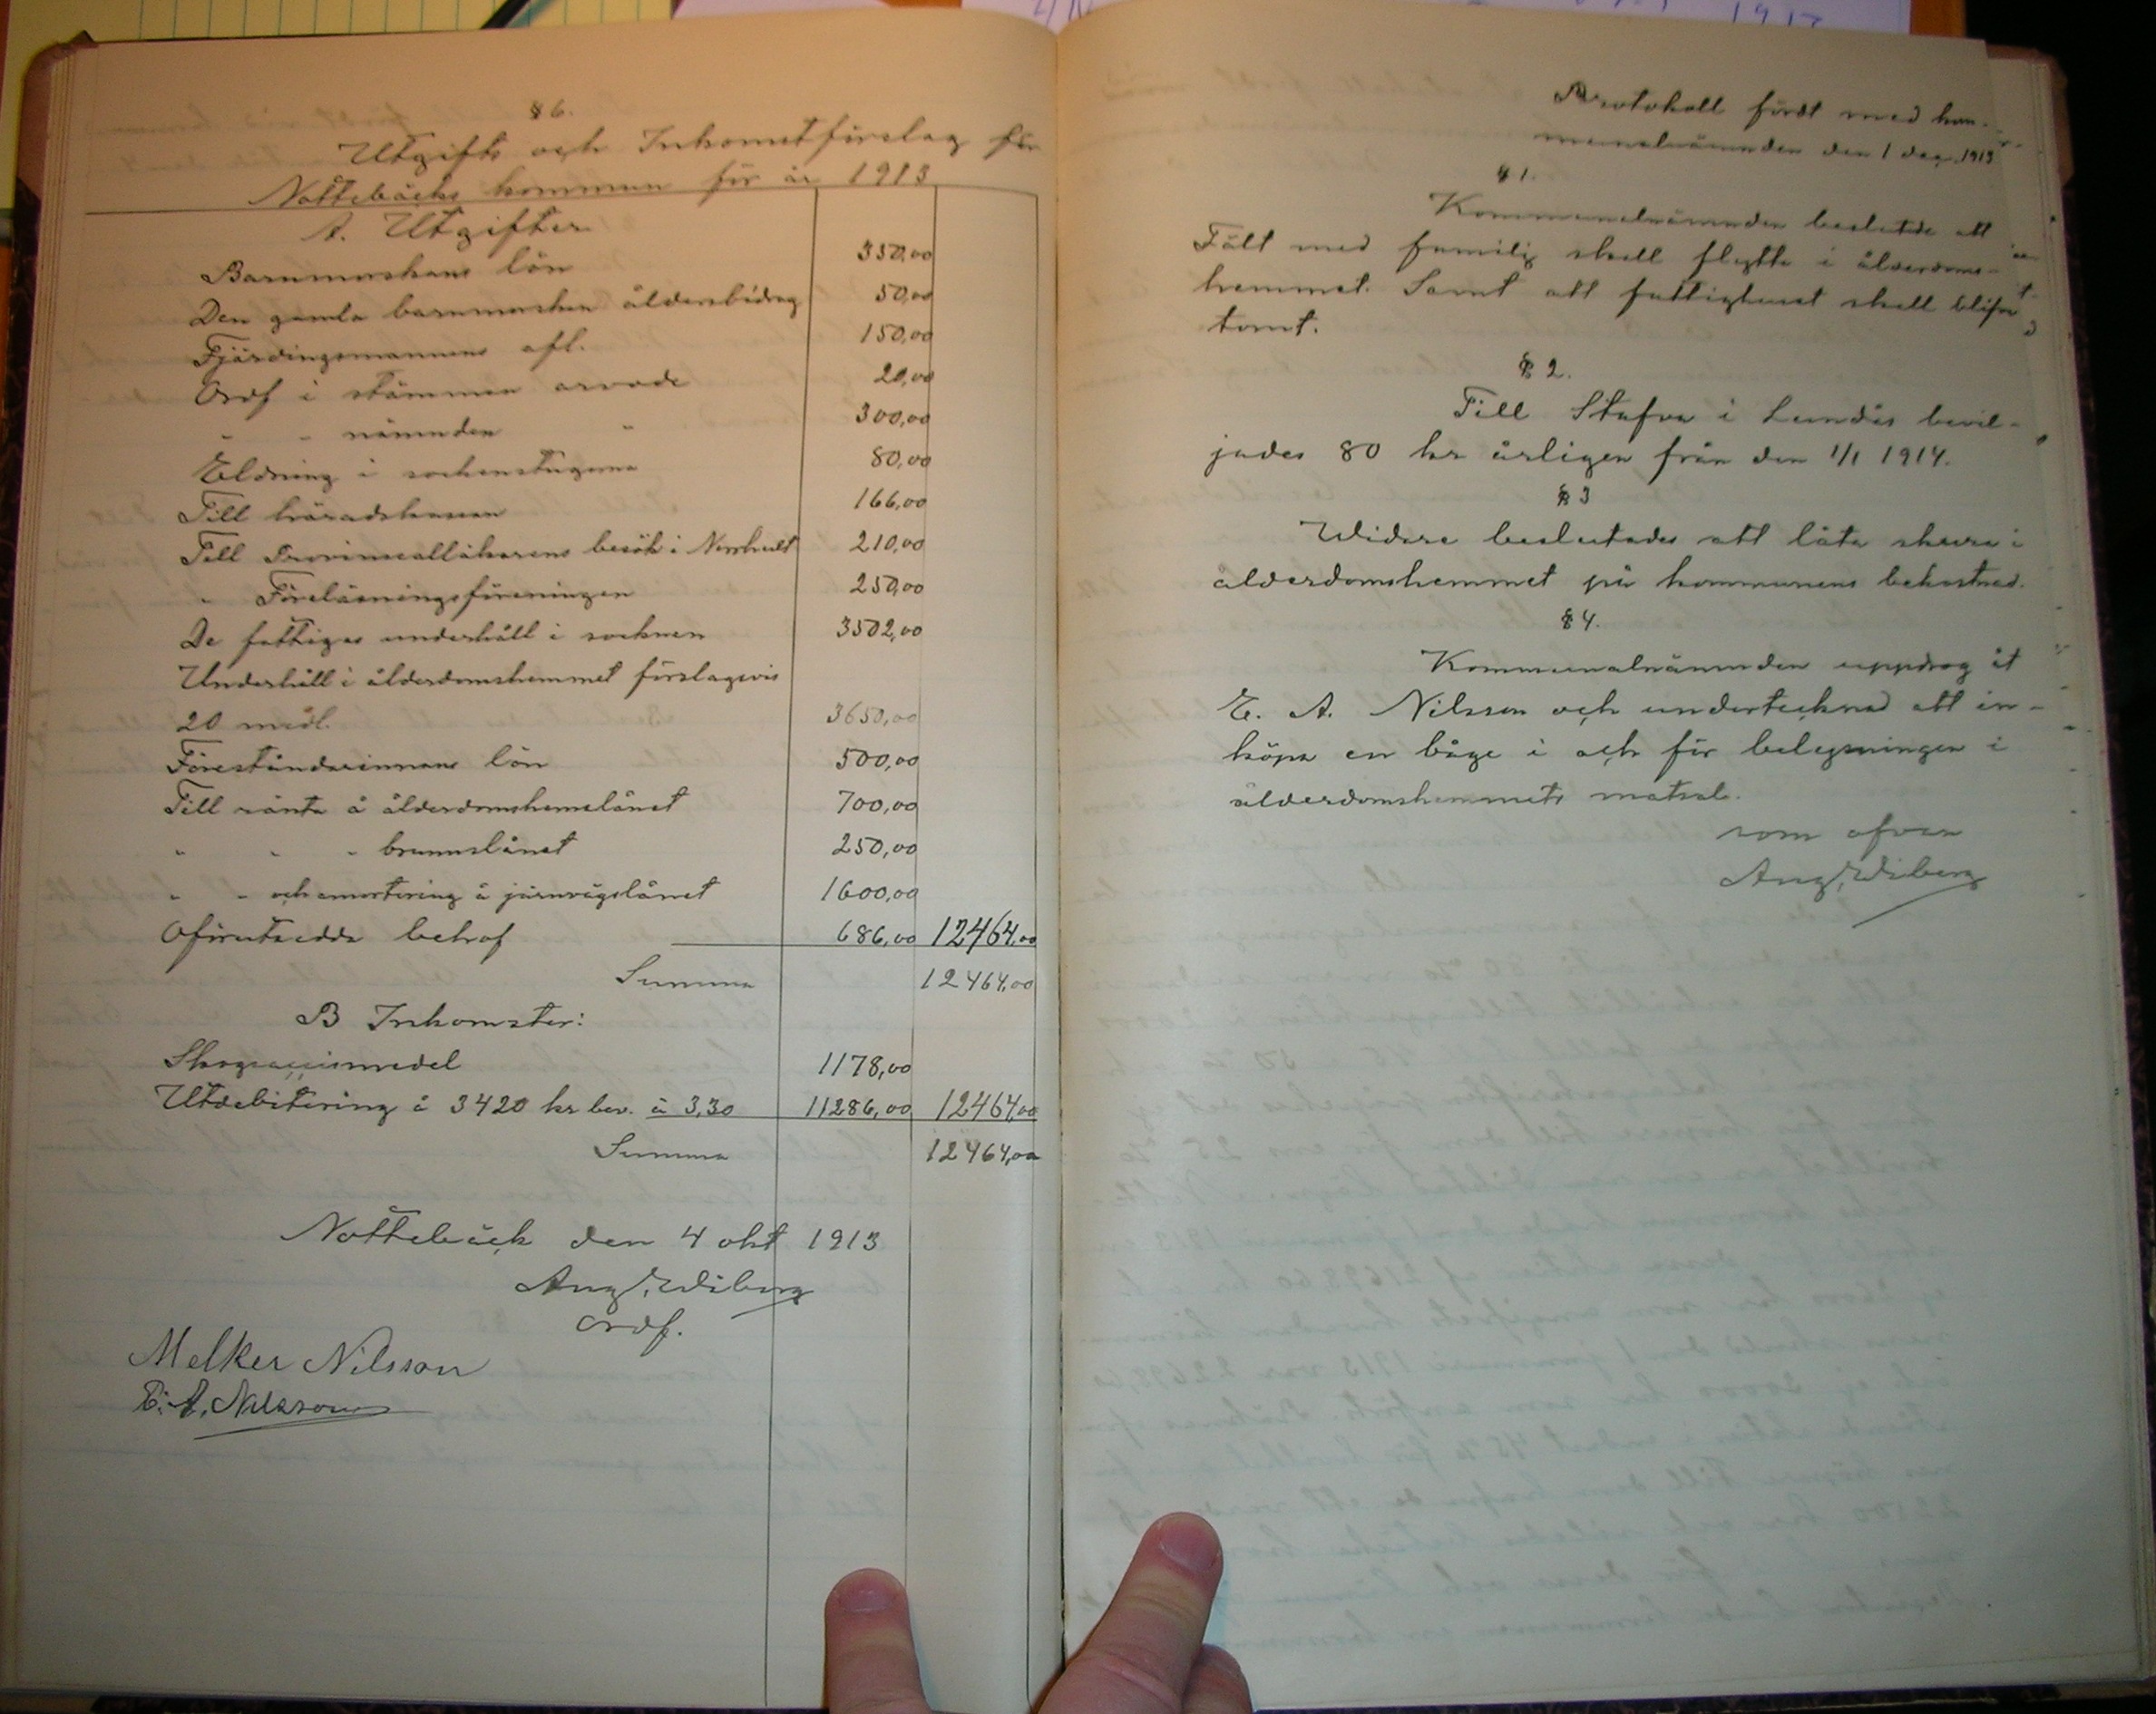 § 6.
Utgifts och Inkomstförslag för
Nottebäcks kommun för år 1913
A. Utgifter
Barnmorskans lön 350,00
Den gamla barnmorskan åldersbidrag 50,00
Fjärdingsmannens afl. 150,00
Ordf i stämman arvode 20,00
" " nämnden " 300,00
Eldning i sockenstugorna 80,00
Till häradskassan 166,00
Till Provinsialläkarens besök i Norrhult 210,00
" Föreläsningsföreningen 250,00
De fattigas underhåll i socknen 3502,00
Underhåll i ålderdomshemmet förslagsvis
20 medl. 3650,00
Föreståndarinnans lön 500,00
Till ränta å ålderdomshemslånet 700,00
" " " brunnslånet 250,00
" " och amortering å järnvägslånet 1600,00
Oförutsedda behof 686,00 12464,00
Summa 12464,00
B Inkomster:
Skogsaccismedel 1178,00
Utdebitering å 3420 kr bev. à 3,30 11286,00 12464,00
Summa 12464,00
Nottebäck den 4 okt 1913
Aug. Wiberg
Ordf.
Melker Nilsson
E. A. Nilsson
Protokoll fördt med kom-
munalnämnden den 1 dec. 1913
§ 1.
Kommunalnämnden beslutade att
Fält med familj skall flytta i ålderdoms-
hemmet. Samt att fattighuset skall blifva
tomt.
§ 2.
Till Stafva i Lundås bevil-
jades 80 kr årligen från den 1/1 1914.
§ 3
Widare beslutades att låta skura i
ålderdomshemmet på kommunens bekostnad.
§ 4.
Kommunalnämnden uppdrog åt
E. A. Nilsson och undertecknad att in-
köpa en båge i och för belysningen i
ålderdomshemmets matsal.
som ofvan
Aug. Wiberg